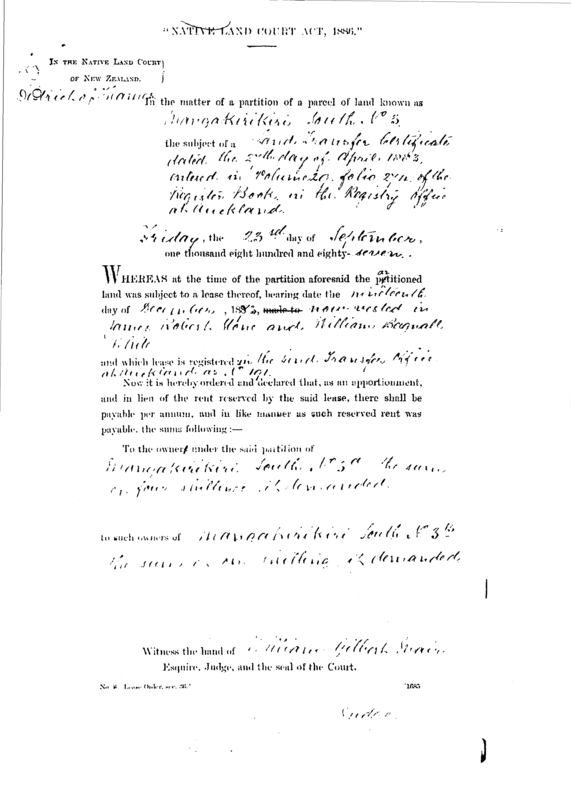 "NATIVE LAND COURT ACT, 1886."
IN THE NATIVE LAND COURT
OF NEW ZEALAND.
District of Thames
In the matter of a partition of a parcel of land known as
Mangakirikiri South No 3
the subject of a Land Transfer Certificate
dated the day of April 1883,
entered in Volume folio of the
Register Book in the Registry Office
at Auckland.
Friday, the 23rd day of September,
one thousand eight hundred and eighty-seven.
WHEREAS at the time of the partition aforesaid the partitioned
land was subject to a lease thereof, bearing date the nineteenth
day of December, made to now vested in
James Robert and William Bagnall
White
and which lease is registered in the Land Transfer Office
at Auckland as No 191.
Now it is hereby ordered and declared that, as an apportionment,
and in lieu of the rent reserved by the said lease, there shall be
payable per annum, and in like manner as such reserved rent was
payable, the sums following:—
To the owner under the said partition of
Mangakirikiri South No 3a the sum
of four shillings if demanded.
to such owners of Mangakirikiri South No 3b
the sum of one shilling if demanded.
Witness the hand of William Gilbert Mair
Esquire, Judge, and the seal of the Court.
No. Lease Order, sec. 36.
1685
Judge